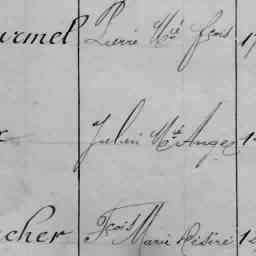 urmel Pierre Mie frçois 17
Julien Mie Ange 1
cher Fçois
Marie Désiré 1